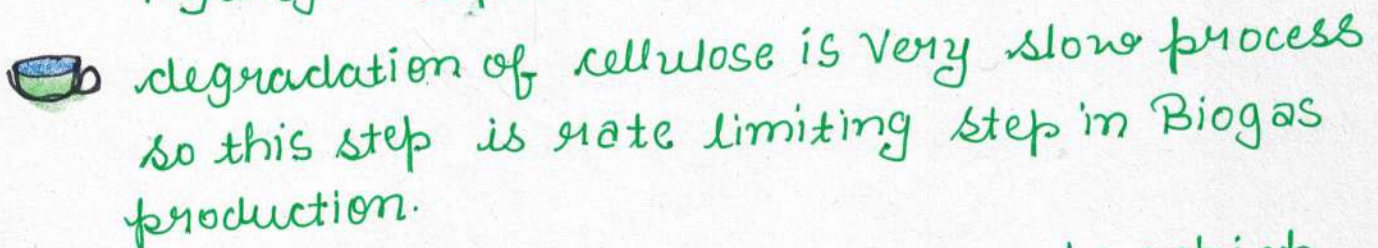 degradation of cellulose is very slow process
so this step is rate limiting step in Biogas
production.